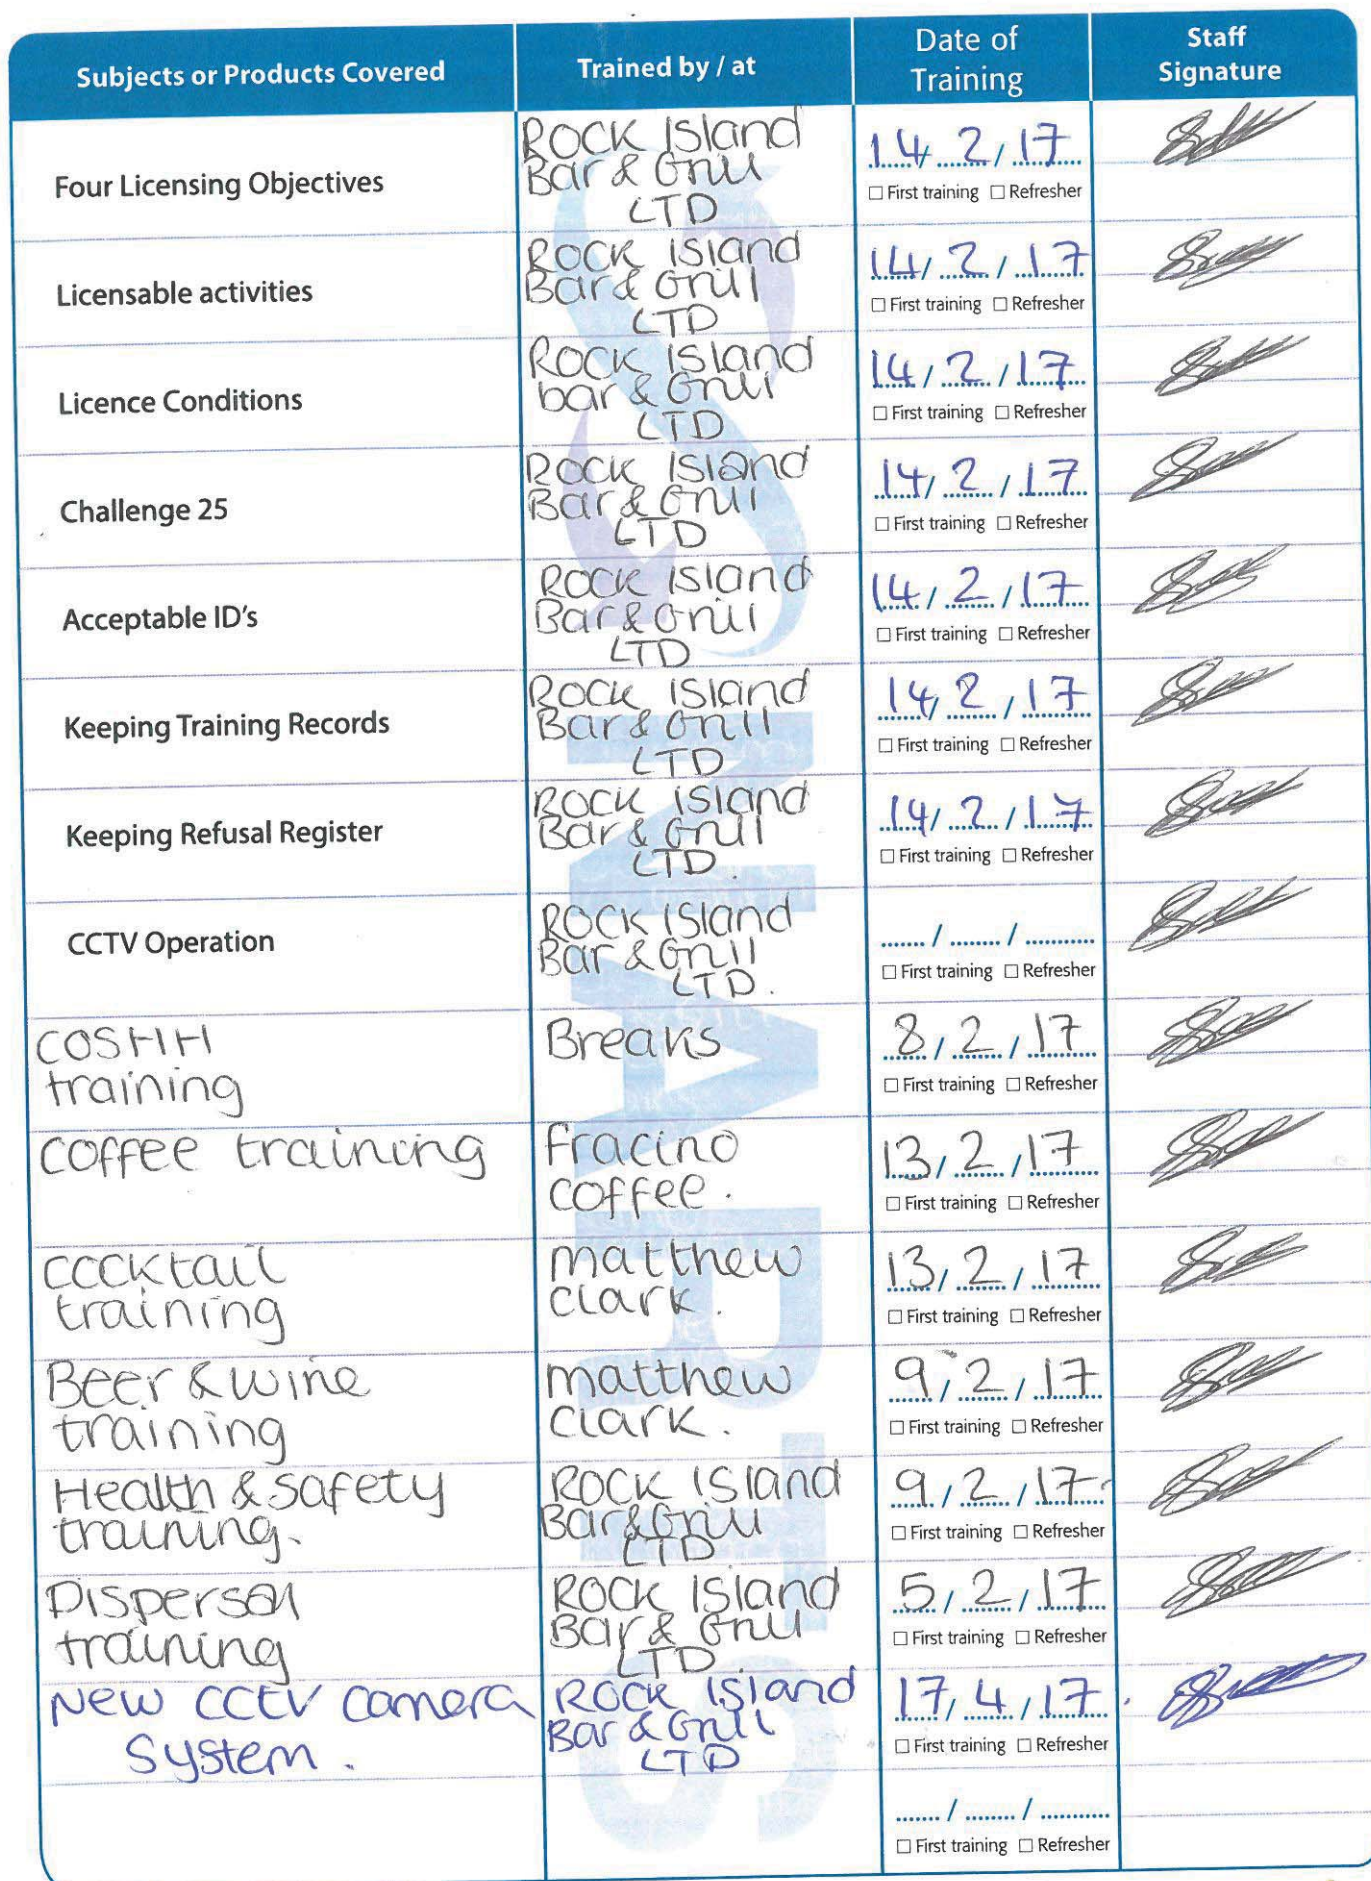 Subjects or Products Covered
Trained by / at
Date of
Training
Staff
Signature
Four Licensing Objectives
ROCK Island
Bar & Grill
LTD
14/ 2/ 17
☐ First training ☐ Refresher
Licensable activities
ROCK Island
Bar & Grill
LTD
14/ 2/ 17
☐ First training ☐ Refresher
Licence Conditions
ROCK Island
bar & Grill
LTD
14/ 2/ 17
☐ First training ☐ Refresher
Challenge 25
ROCK Island
Bar & Grill
LTD
14/ 2/ 17
☐ First training ☐ Refresher
Acceptable ID's
ROCK Island
Bar & Grill
LTD
14/ 2/ 17
☐ First training ☐ Refresher
Keeping Training Records
ROCK Island
Bar & Grill
LTD
14/ 2/ 17
☐ First training ☐ Refresher
Keeping Refusal Register
ROCK Island
Bar & Grill
LTD.
14/ 2/ 17
☐ First training ☐ Refresher
CCTV Operation
ROCK Island
Bar & Grill
LTD.
....... / ........ / ...........
☐ First training ☐ Refresher
COSHH
training
Breaks
8/ 2/ 17
☐ First training ☐ Refresher
Coffee training
Fracino
coffee.
13/ 2/ 17
☐ First training ☐ Refresher
Cocktail
training
matthew
clark.
13/ 2/ 17
☐ First training ☐ Refresher
Beer & wine
training
matthew
clark.
9/ 2/ 17
☐ First training ☐ Refresher
Health & safety
training.
ROCK Island
Bar & Grill
LTD
9/ 2/ 17
☐ First training ☐ Refresher
Dispersal
training
ROCK Island
Bar & Grill
LTD.
5/ 2/ 17
☐ First training ☐ Refresher
New CCTV Camera
System.
ROCK Island
Bar & Grill
LTD
17/ 4/ 17
☐ First training ☐ Refresher
....... / ........ / ...........
☐ First training ☐ Refresher